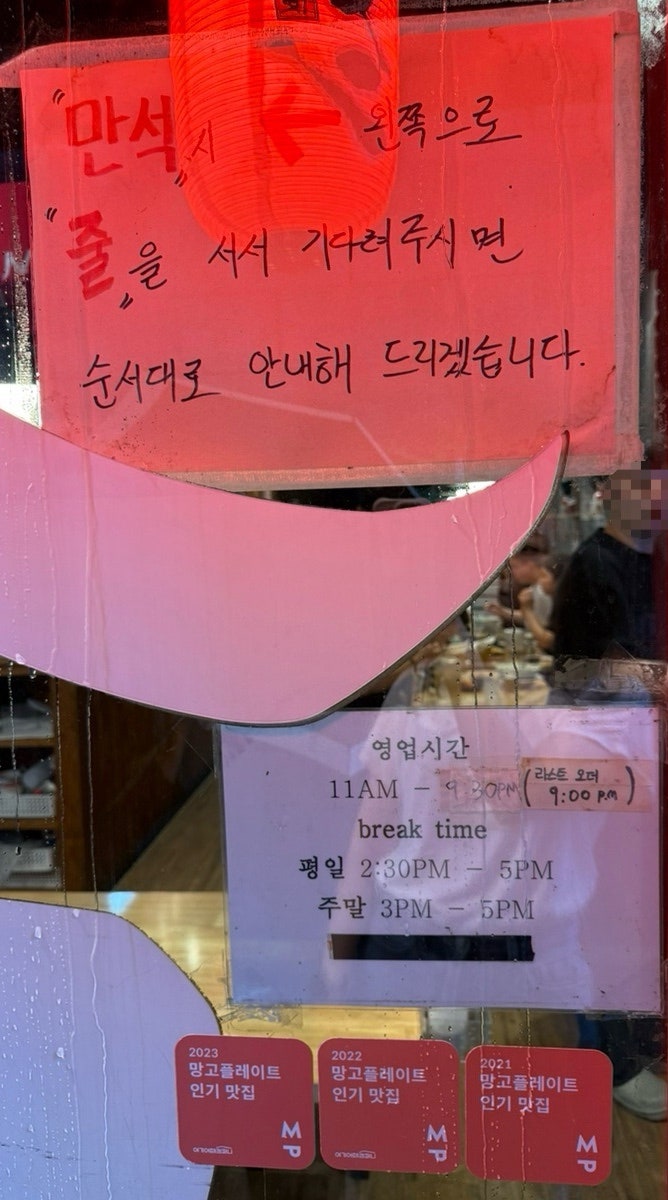 "만석"시 ← 왼쪽으로
"줄"을 서서 기다려주시면
순서대로 안내해 드리겠습니다.
영업시간
11AM - 9:30PM (라스트 오더 9:00 P.M)
break time
평일 2:30PM - 5PM
주말 3PM - 5PM
2023
망고플레이트
인기 맛집
MP
2022
망고플레이트
인기 맛집
MP
2021
망고플레이트
인기 맛집
MP